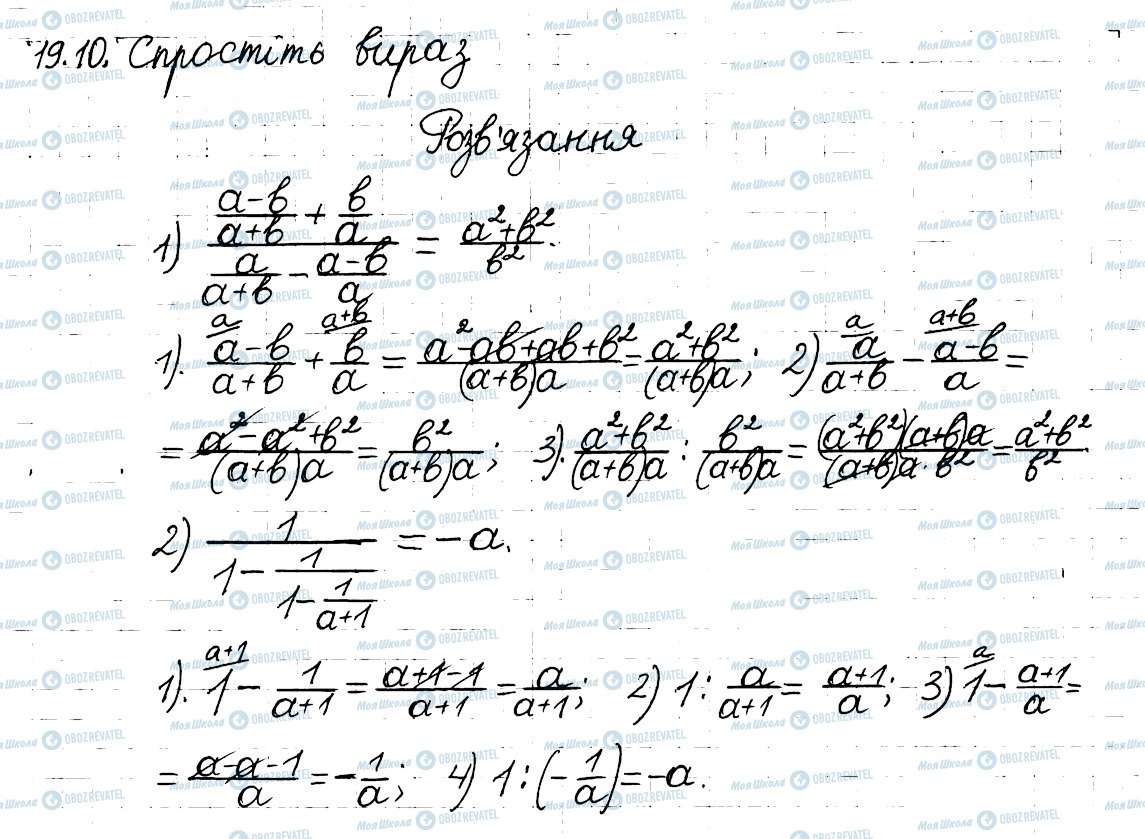 19.10. Спростіть вираз
Розв'язання
1) ((a-b)/(a+b) + b/a) / (a/(a+b) - (a-b)/a) = (a²+b²)/b².
1). (a-b)/(a+b) + b/a = (a²-ab+ab+b²)/((a+b)a) = (a²+b²)/((a+b)a); 2) a/(a+b) - (a-b)/a =
= (a²-a²+b²)/((a+b)a) = b²/((a+b)a); 3). (a²+b²)/((a+b)a) : b²/((a+b)a) = ((a²+b²)(a+b)a)/((a+b)a·b²) = (a²+b²)/b².
2) 1/(1 - 1/(1 - 1/(a+1))) = -a.
1). 1 - 1/(a+1) = (a+1-1)/(a+1) = a/(a+1); 2) 1 : a/(a+1) = (a+1)/a; 3) 1 - (a+1)/a =
= (a-a-1)/a = -1/a; 4) 1 : (-1/a) = -a.
Моя Школа OBOZREVATEL